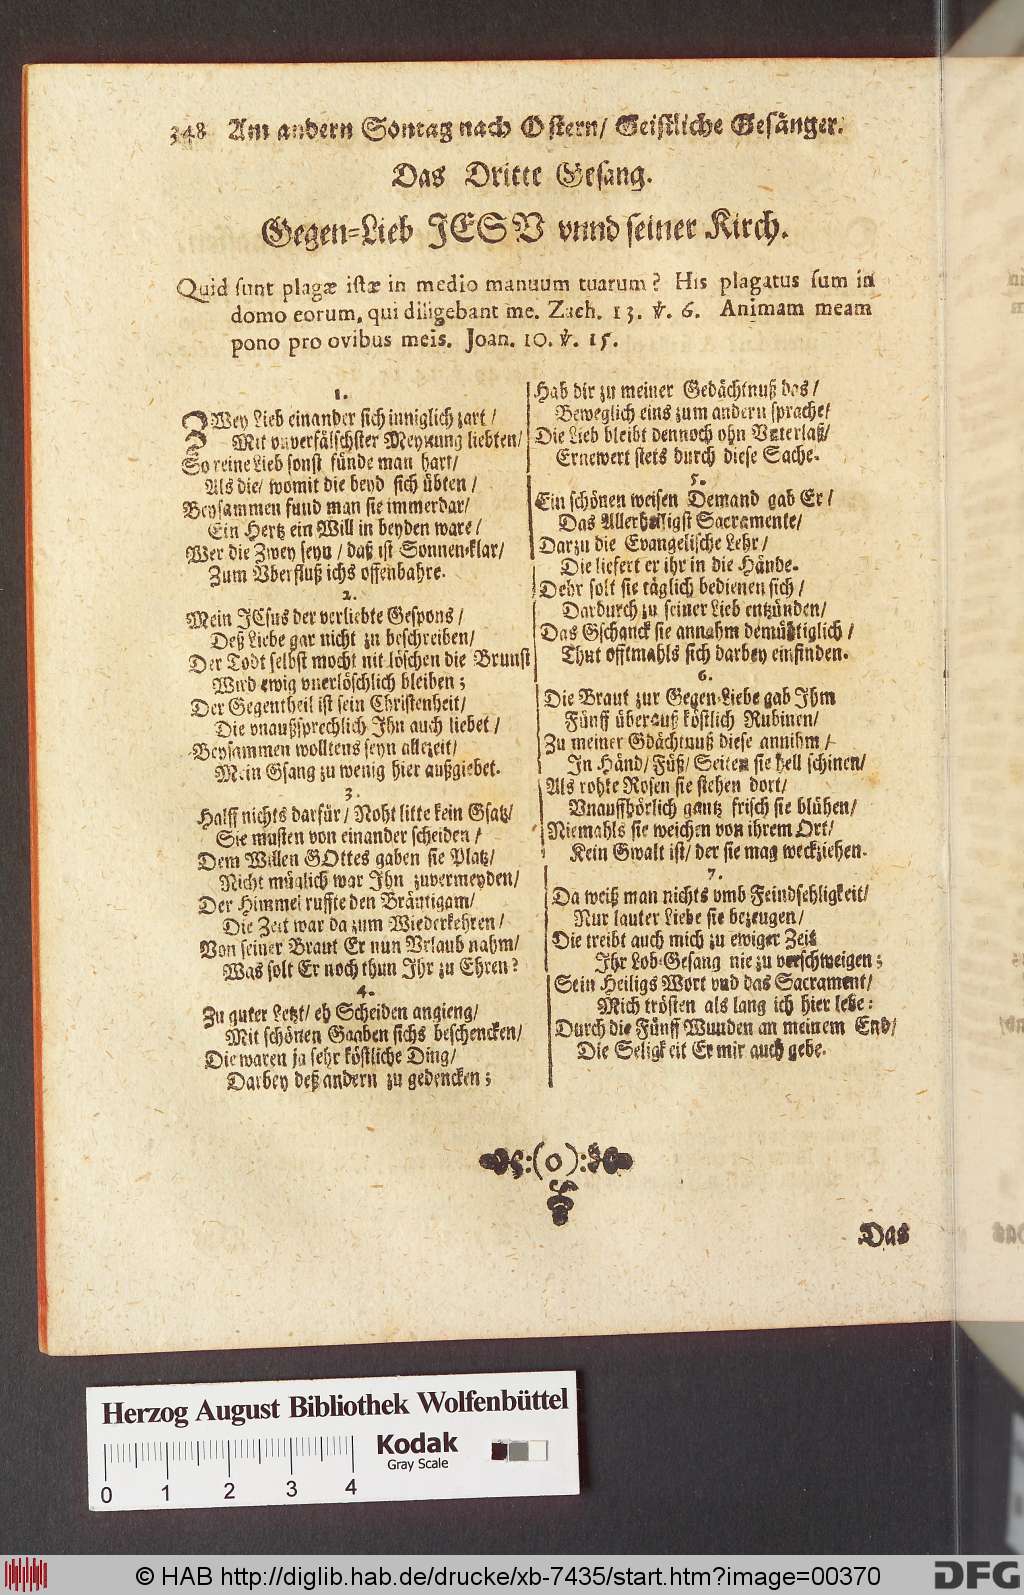 348 Am andern Sontag nach Ostern/ Geistliche Gesänger.
Das Dritte Gesang.
Gegen-Lieb JESV vnnd seiner Kirch.
Quid sunt plagæ istæ in medio manuum tuarum? His plagatus sum in
domo eorum, qui diligebant me. Zach. 13. ℣. 6. Animam meam
pono pro ovibus meis. Joan. 10. ℣. 15.
1.
ZWey Lieb einander sich inniglich zart/
Mit vnverfälschster Meynung liebten/
So reine Lieb sonst fünde man hart/
Als die/ womit die beyd sich übten/
Beysammen fund man sie immerdar/
Ein Hertz ein Will in beyden ware/
Wer die Zwey seyn/ daß ist Sonnen-klar/
Zum Vberfluß ichs offenbahre.
2.
Mein JEsus der verliebte Gespons/
Deß Liebe gar nicht zu beschreiben/
Der Todt selbst mocht nit löschen die Brunst
Wird ewig vnerlöschlich bleiben;
Der Gegentheil ist sein Christenheit/
Die vnaußsprechlich Ihn auch liebet/
Beysammen wolltens seyn allezeit/
Mein Gsang zu wenig hier außgiebet.
3.
Halff nichts darfür/ Noht litte kein Gsatz/
Sie musten von einander scheiden/
Dem Willen GOttes gaben sie Platz/
Nicht müglich war Ihn zuvermeyden/
Der Himmel ruffte den Bräutigam/
Die Zeit war da zum Wiederkehren/
Von seiner Braut Er nun Vrlaub nahm/
Was solt Er noch thun Ihr zu Ehren?
4.
Zu guter Letzt/ eh Scheiden angieng/
Mit schönen Gaaben sichs beschencken/
Die waren ja sehr köstliche Ding/
Darbey deß andern zu gedencken;
Hab dir zu meiner Gedächtnuß das/
Beweglich eins zum andern sprache/
Die Lieb bleibt dennoch ohn Vnterlaß/
Ernewert stets durch diese Sache.
5.
Ein schönen weisen Demand gab Er/
Das Allerheiligst Sacramente/
Darzu die Evangelische Lehr/
Die liefert er ihr in die Hände.
Dehr solt sie täglich bedienen sich/
Dardurch zu seiner Lieb entzünden/
Das Gschanck sie annahm demühtiglich/
Thut offtmahls sich darbey einfinden.
6.
Die Braut zur Gegen-Liebe gab Ihm
Fünff überauß köstlich Rubinen/
Zu meiner Gdächtnuß diese annihm/
In Händ/ Füß/ Seiten sie hell schinen/
Als rohte Rosen sie stehen dort/
Vnauffhörlich gantz frisch sie blühen/
Niemahls sie weichen von ihrem Ort/
Kein Gwalt ist/ der sie mag weckziehen.
7.
Da weiß man nichts vmb Feindsehligkeit/
Nur lauter Liebe sie bezeugen/
Die treibt auch mich zu ewiger Zeit
Ihr Lob-Gesang nie zu verschweigen;
Sein Heiligs Wort vnd das Sacrament/
Mich trösten als lang ich hier lebe:
Durch die Fünff Wunden an meinem End/
Die Seligkeit Er mir auch gebe.
:(o):
Das
Herzog August Bibliothek Wolfenbüttel
Kodak
Gray Scale
0 1 2 3 4
© HAB http://diglib.hab.de/drucke/xb-7435/start.htm?image=00370
DFG